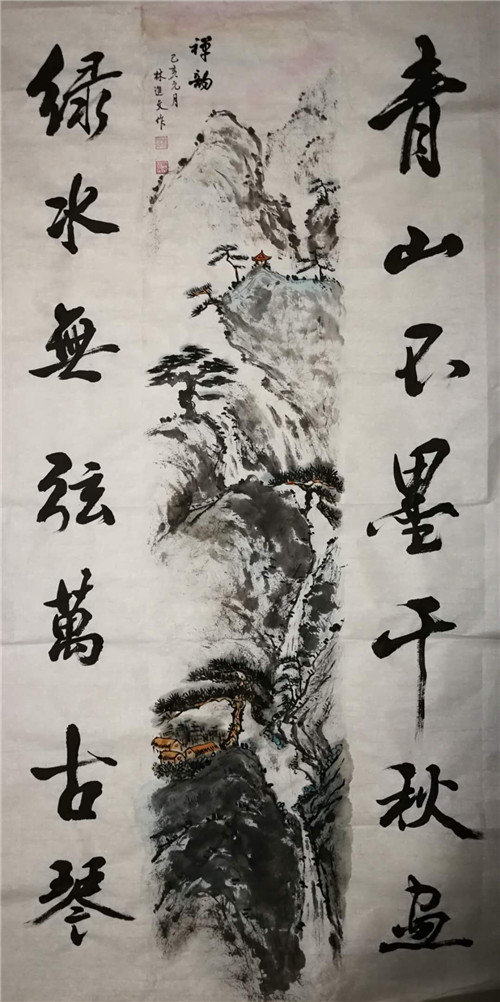 青山不墨千秋画
禅韵
己亥元月
林进文作
绿水無弦萬古琴